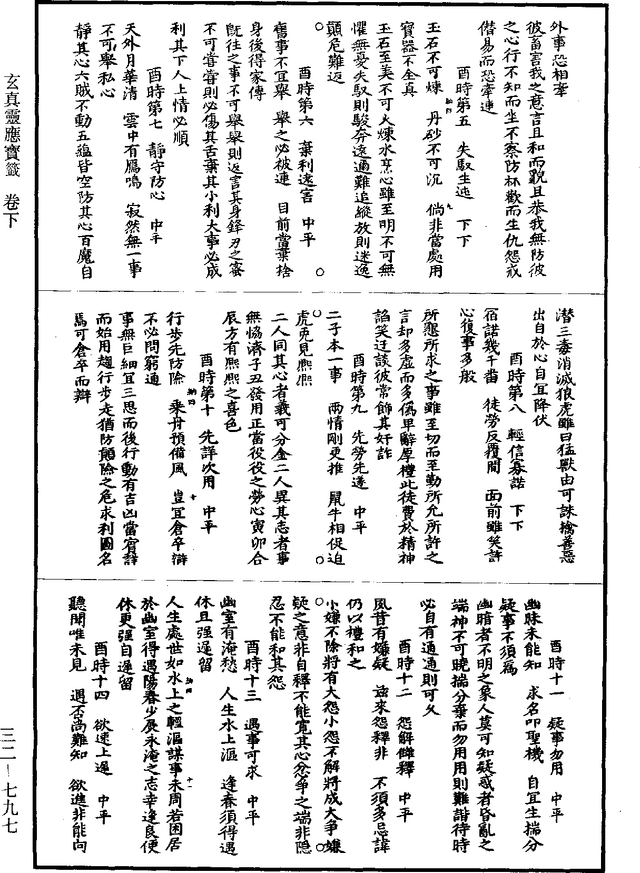 玄真靈應寶籤 卷下
三二—七九七
外事恐相牽
彼畜害我之意言且和而貌且恭我無防彼
之心行不知而坐不察防杯歡而生仇怨或
僭易而恐牽連
酉時第五 失馭生迍 下下
玉石不可煉 丹砂不可沉 倘非當處用
寶器不全真
玉石至美不可火煉水烹心雖至明不可無
懼無憂失馭則駿奔遠適難追縱放則迷逸
顛危難返
酉時第六 棄利遠害 中平
舊事不宜舉 舉之必被連 目前當棄捨
身後得家傳
既往之事不可舉舉則返害其身鋒刃之蜜
不可嘗嘗則必傷其舌棄其小利大事必成
利其下人上情必順
酉時第七 靜守防心 中平
天外月華清 雲中有鴈鳴 寂然無一事
不可舉私心
靜其心六賊不動五蘊皆空防其心百魔自
潛三毒消滅狼虎雖曰猛獸由可誅擒善惡
出自於心自宜降伏
酉時第八 輕信寡諾 下下
宿諾幾千番 徒勞反覆間 面前雖笑許
心復事多般
所懇所求之事雖至切而至勤所允所許之
言却多虛而多偽卑辭厚禮此徒費於精神
諂笑迂談彼常飾其奸詐
酉時第九 先勞先遂 中平
二子本一事 兩情剛更推 鼠牛相促迫
虎兎見熈熈
二人同其心者義可分金二人異其志者事
無恊濟子丑發用正當役役之勞心寅卯合
辰方有熈熈之喜色
酉時第十 先詳次用 中平
行步先防險 乘舟預備風 豈宜倉卒辯
不必問窮通
事無巨細宜三思而後行動有吉凶當審辭
而始用趨行步走猶防顛險之危求利圖名
焉可倉卒而辯
酉時十一 疑事勿用 中平
幽昧未能知 求名叩聖機 自宜生揣分
疑事不須為
幽暗者不明之象人莫可知疑惑者昏亂之
端神不可曉揣分棄而勿用用則難諧待時
必自有通通則可久
酉時十二 怨解讎釋 中平
風昔有嫌疑 茲來怨釋非 不須多忌諱
仍以禮和之
小嫌不除將有大怨小怨不解將成大爭嫌
疑之意非自釋不能寬其心忿爭之端非隱
忍不能和其怨
酉時十三 遇事可求 中平
幽室有淹愁 人生水上漚 逢春須得遇
休且强遲留
人生處世如水上之輕漚謀事未周若困居
於幽室得遇陽春少展永淹之志幸逢良便
休更强自遲留
酉時十四 欲速上遲 中平
聽聞唯未見 遇否尚難知 欲進非能向